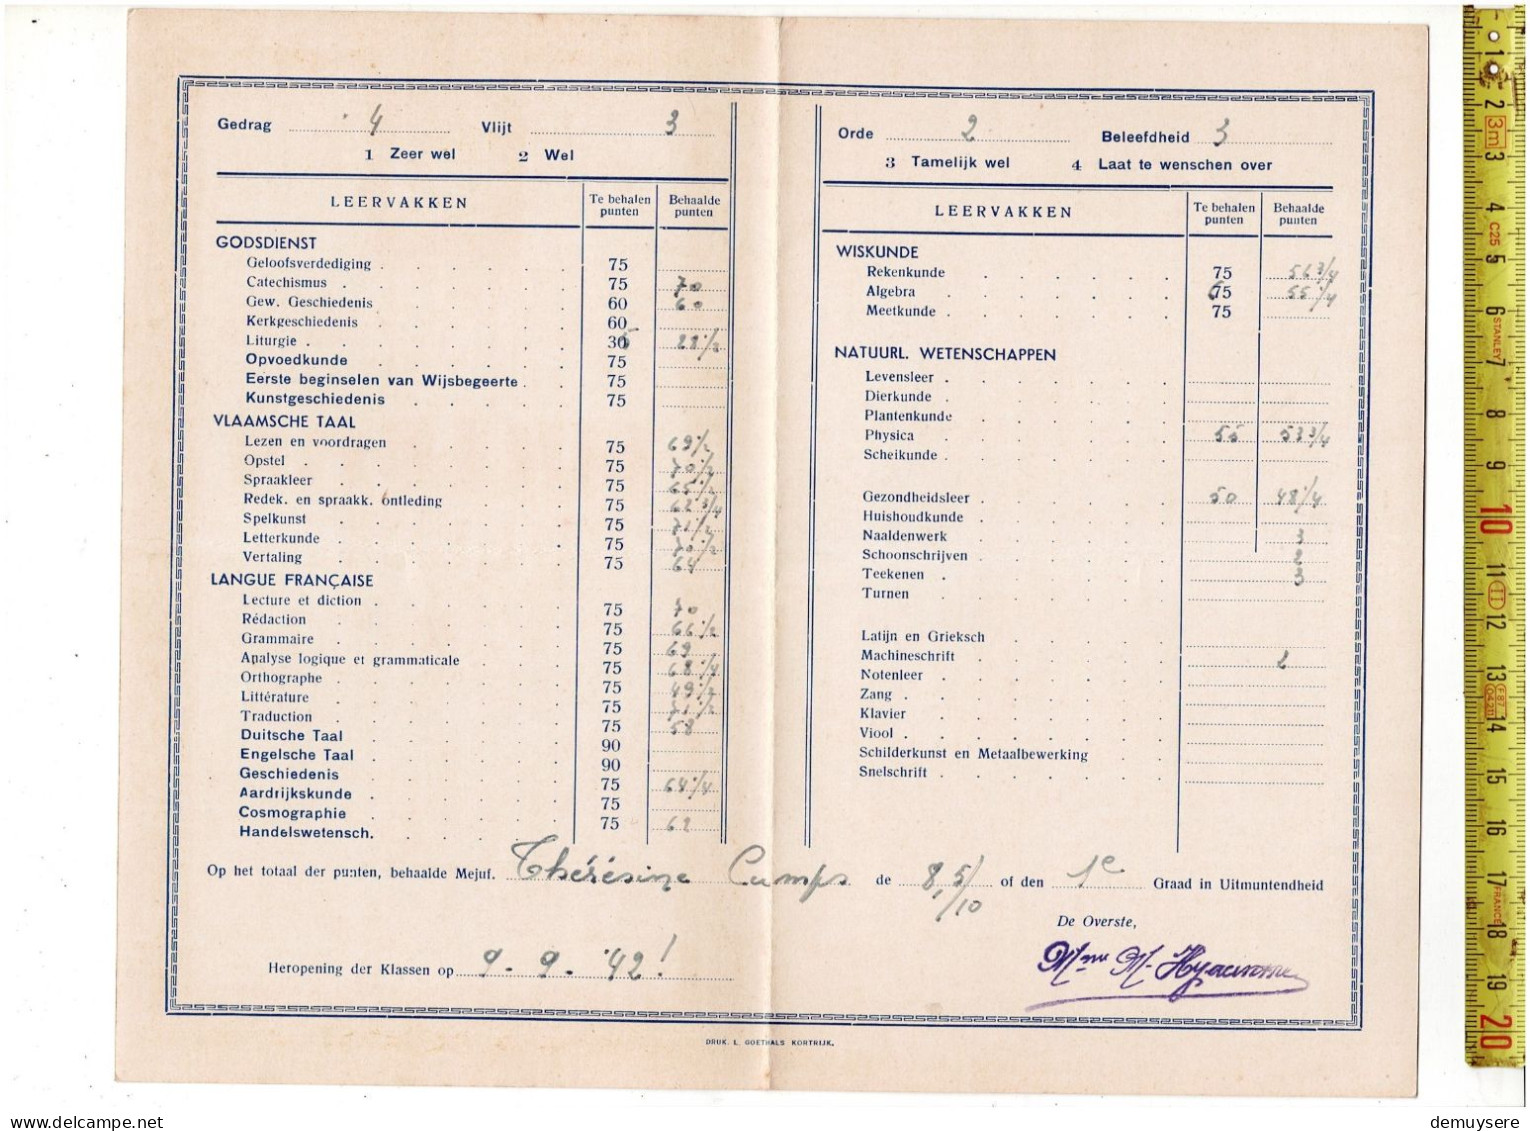 Gedrag 4 Vlijt 3
1 Zeer wel 2 Wel
LEERVAKKEN Te behalen punten Behaalde punten
GODSDIENST
Geloofsverdediging 75
Catechismus 75 70
Gew. Geschiedenis 60 60
Kerkgeschiedenis 60
Liturgie 30 28 1/2
Opvoedkunde 75
Eerste beginselen van Wijsbegeerte 75
Kunstgeschiedenis 75
VLAAMSCHE TAAL
Lezen en voordragen 75 69 1/2
Opstel 75 70 1/2
Spraakleer 75 65 1/2
Redek. en spraakk. ontleding 75 62 3/4
Spelkunst 75 71 1/4
Letterkunde 75 70 1/2
Vertaling 75 64
LANGUE FRANÇAISE
Lecture et diction 75 70
Rédaction 75 66 1/2
Grammaire 75 69
Analyse logique et grammaticale 75 68 1/4
Orthographe 75 49 1/2
Littérature 75 71 1/2
Traduction 75 58
Duitsche Taal 90
Engelsche Taal 90
Geschiedenis 75 64 1/4
Aardrijkskunde 75
Cosmographie 75 62
Handelswetensch.
Orde 2 Beleefdheid 3
3 Tamelijk wel 4 Laat te wenschen over
LEERVAKKEN Te behalen punten Behaalde punten
WISKUNDE
Rekenkunde 75 56 3/4
Algebra 75 55 1/4
Meetkunde 75
NATUURL. WETENSCHAPPEN
Levensleer
Dierkunde
Plantenkunde
Physica 55 53 3/4
Scheikunde
Gezondheidsleer 50 48 1/4
Huishoudkunde
Naaldenwerk 3
Schoonschrijven 2
Teekenen 3
Turnen
Latijn en Grieksch
Machineschrift 2
Notenleer
Zang
Klavier
Viool
Schilderkunst en Metaalbewerking
Snelschrift
Op het totaal der punten, behaalde Mejuf. Thérésine Camps de 8,5/10 of den 1e Graad in Uitmuntendheid
De Overste,
Heropening der Klassen op 9-9-'42!
Mme M. Hyacinthe
DRUK. L. GOETHALS KORTRIJK.
1 2 3 4 5 6 7 8 9 10 11 12 13 14 15 16 17 18 19 20
3m
C25
STANLEY
II
FRANCE
demuysere